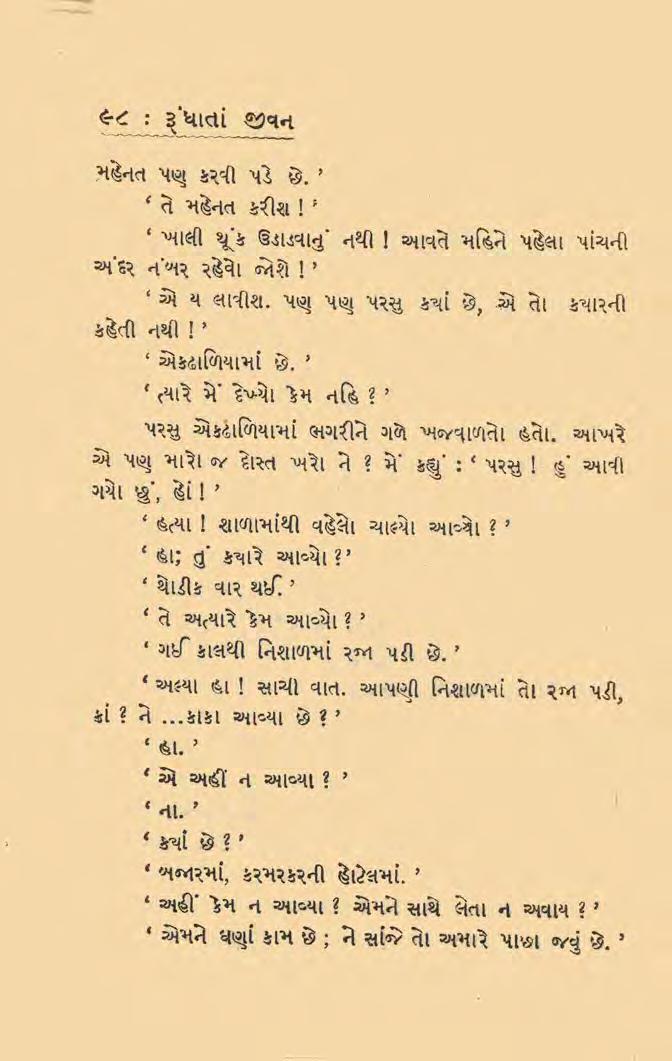 ૯૮ : રૂંધાતાં જીવન
મહેનત પણ કરવી પડે છે. ’
‘ તે મહેનત કરીશ ! ’
‘ ખાલી થૂંક ઉડાડવાનું નથી ! આવતે મહિને પહેલા પાંચની
અંદર નંબર રહેવો જોશે ! ’
‘ એ ય લાવીશ. પણ પણ પરસુ ક્યાં છે, એ તો ક્યારની
કહેતી નથી ! ’
‘ એકઢાળિયામાં છે. ’
‘ ત્યારે મેં દેખ્યો કેમ નહિ ? ’
પરસુ એકઢાળિયામાં ભગરીને ગળે ખજવાળતો હતો. આખરે
એ પણ મારો જ દોસ્ત ખરો ને ? મેં કહ્યું : ‘ પરસુ ! હું આવી
ગયો છું, હોં ! ’
‘ હત્યા ! શાળામાંથી વહેલો ચાલ્યો આવ્યો ? ’
‘ હા; તું ક્યારે આવ્યો ?’
‘ થોડીક વાર થઈ. ’
‘ તે અત્યારે કેમ આવ્યો ? ’
‘ ગઈ કાલથી નિશાળમાં રજા પડી છે. ’
‘ અલ્યા હા ! સાચી વાત. આપણી નિશાળમાં તો રજા પડી,
કાં ? ને ...કાકા આવ્યા છે ? ’
‘ હા. ’
‘ એ અહીં ન આવ્યા ? ’
‘ ના. ’
‘ ક્યાં છે ? ’
‘ બજારમાં, કરમરકરની હોટેલમાં. ’
‘ અહીં કેમ ન આવ્યા ? એમને સાથે લેતા ન અવાય ? ’
‘ એમને ઘણાં કામ છે ; ને સાંજે તો અમારે પાછા જવું છે. ’